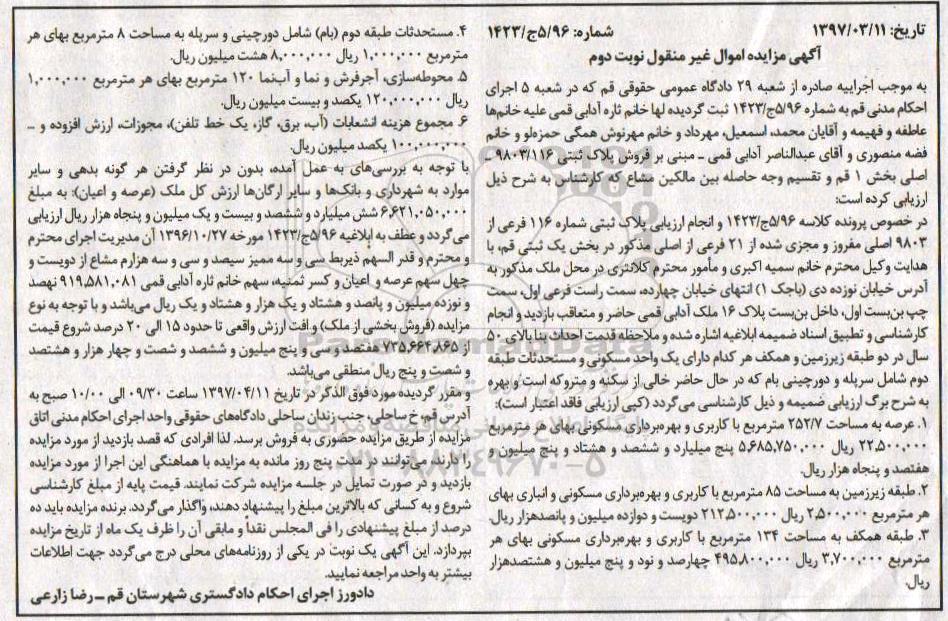 تاریخ: ۱۳۹۷/۰۳/۱۱
شماره: ۵/۹۶ج/۱۴۲۳
آگهی مزایده اموال غیر منقول نوبت دوم
به موجب اجراییه صادره از شعبه ۲۹ دادگاه عمومی حقوقی قم که در شعبه ۵ اجرای
احکام مدنی قم به شماره ۵/۹۶ج/۱۴۲۳ ثبت گردیده لها خانم ثاره آدابی قمی علیه خانم‌ها
عاطفه و فهیمه و آقایان محمد، اسمعیل، مهرداد و خانم مهرنوش همگی حمزه‌لو و خانم
فضه منصوری و آقای عبدالناصر آدابی قمی ـ مبنی بر فروش پلاک ثبتی ۹۸۰۳/۱۱۶ ـ
اصلی بخش ۱ قم و تقسیم وجه حاصله بین مالکین مشاع که کارشناس به شرح ذیل
ارزیابی کرده است:
در خصوص پرونده کلاسه ۵/۹۶ج/۱۴۲۳ و انجام ارزیابی پلاک ثبتی شماره ۱۱۶ فرعی از
۹۸۰۳ اصلی مفروز و مجزی شده از ۲۱ فرعی از اصلی مذکور در بخش یک ثبتی قم، با
هدایت وکیل محترم خانم سمیه اکبری و مأمور محترم کلانتری در محل ملک مذکور به
آدرس خیابان نوزده دی (باجک ۱) انتهای خیابان چهارده، سمت راست فرعی اول، سمت
چپ بن‌بست اول، داخل بن‌بست پلاک ۱۶ ملک آدابی قمی حاضر و متعاقب بازدید و انجام
کارشناسی و تطبیق اسناد ضمیمه ابلاغیه اشاره شده و ملاحظه قدمت احداث بنا بالای ۵۰
سال در دو طبقه زیرزمین و همکف هر کدام دارای یک واحد مسکونی و مستحدثات طبقه
دوم شامل سرپله و دورچینی بام که در حال حاضر خالی از سکنه و متروکه است و بهره
به شرح برگ ارزیابی ضمیمه و ذیل کارشناسی می‌گردد (کپی ارزیابی فاقد اعتبار است):
۱. عرصه به مساحت ۲۵۲/۷ مترمربع با کاربری و بهره‌برداری مسکونی بهای هر مترمربع
۲۲,۵۰۰,۰۰۰ ریال ۵,۶۸۵,۷۵۰,۰۰۰ پنج میلیارد و ششصد و هشتاد و پنج میلیون و
هفتصد و پنجاه هزار ریال.
۲. طبقه زیرزمین به مساحت ۸۵ مترمربع با کاربری و بهره‌برداری مسکونی و انباری بهای
هر مترمربع ۲,۵۰۰,۰۰۰ ریال ۲۱۲,۵۰۰,۰۰۰ دویست و دوازده میلیون و پانصدهزار ریال.
۳. طبقه همکف به مساحت ۱۳۴ مترمربع با کاربری و بهره‌برداری مسکونی بهای هر
مترمربع ۳,۷۰۰,۰۰۰ ریال ۴۹۵,۸۰۰,۰۰۰ چهارصد و نود و پنج میلیون و هشتصدهزار
ریال.
۴. مستحدثات طبقه دوم (بام) شامل دورچینی و سرپله به مساحت ۸ مترمربع بهای هر
مترمربع ۱,۰۰۰,۰۰۰ ریال ۸,۰۰۰,۰۰۰ هشت میلیون ریال.
۵. محوطه‌سازی، آجرفرش و نما و آب‌نما ۱۲۰ مترمربع بهای هر مترمربع ۱,۰۰۰,۰۰۰
ریال ۱۲۰,۰۰۰,۰۰۰ یکصد و بیست میلیون ریال.
۶. مجموع هزینه انشعابات (آب، برق، گاز، یک خط تلفن)، مجوزات، ارزش افزوده و ـ
۱۰۰,۰۰۰,۰۰۰ یکصد میلیون ریال.
با توجه به بررسی‌های به عمل آمده، بدون در نظر گرفتن هر گونه بدهی و سایر
موارد به شهرداری و بانک‌ها و سایر ارگان‌ها ارزش کل ملک (عرصه و اعیان): به مبلغ
۶,۶۲۱,۰۵۰,۰۰۰ شش میلیارد و ششصد و بیست و یک میلیون و پنجاه هزار ریال ارزیابی
می‌گردد و عطف به ابلاغیه ۵/۹۶ج/۱۴۲۳ مورخه ۱۳۹۶/۱۰/۲۷ آن مدیریت اجرای محترم
و محترم و قدر السهم ذیربط سی و سه ممیز سیصد و سی و سه هزارم مشاع از دویست و
چهل سهم عرصه و اعیان و کسر ثمنیه، سهم خانم ثاره آدابی قمی ۹۱۹,۵۸۱,۰۸۱ نهصد
و نوزده میلیون و پانصد و هشتاد و یک هزار و هشتاد و یک ریال می‌باشد و با توجه به نوع
مزایده (فروش بخشی از ملک) و افت ارزش واقعی تا حدود ۱۵ الی ۲۰ درصد شروع قیمت
از ۷۳۵,۶۶۴,۸۶۵ هفتصد و سی و پنج میلیون و ششصد و شصت و چهار هزار و هشتصد
و شصت و پنج ریال منطقی می‌باشد.
و مقرر گردیده مورد فوق الذکر در تاریخ ۱۳۹۷/۰۴/۱۱ ساعت ۰۹/۳۰ الی ۱۰/۰۰ صبح به
آدرس قم، خ ساحلی، جنب زندان ساحلی دادگاه‌های حقوقی واحد اجرای احکام مدنی اتاق
مزایده از طریق مزایده حضوری به فروش برسد. لذا افرادی که قصد بازدید از مورد مزایده
را دارند، می‌توانند در مدت پنج روز مانده به مزایده با هماهنگی این اجرا از مورد مزایده
بازدید و در صورت تمایل در جلسه مزایده شرکت نمایند. قیمت پایه از مبلغ کارشناسی
شروع و به کسانی که بالاترین مبلغ را پیشنهاد دهند، واگذار می‌گردد. برنده مزایده باید ده
درصد از مبلغ پیشنهادی را فی المجلس نقداً و مابقی آن را ظرف یک ماه از تاریخ مزایده
بپردازد. این آگهی یک نوبت در یکی از روزنامه‌های محلی درج می‌گردد جهت اطلاعات
بیشتر به واحد مراجعه نمایید.
دادورز اجرای احکام دادگستری شهرستان قم ـ رضا زارعی